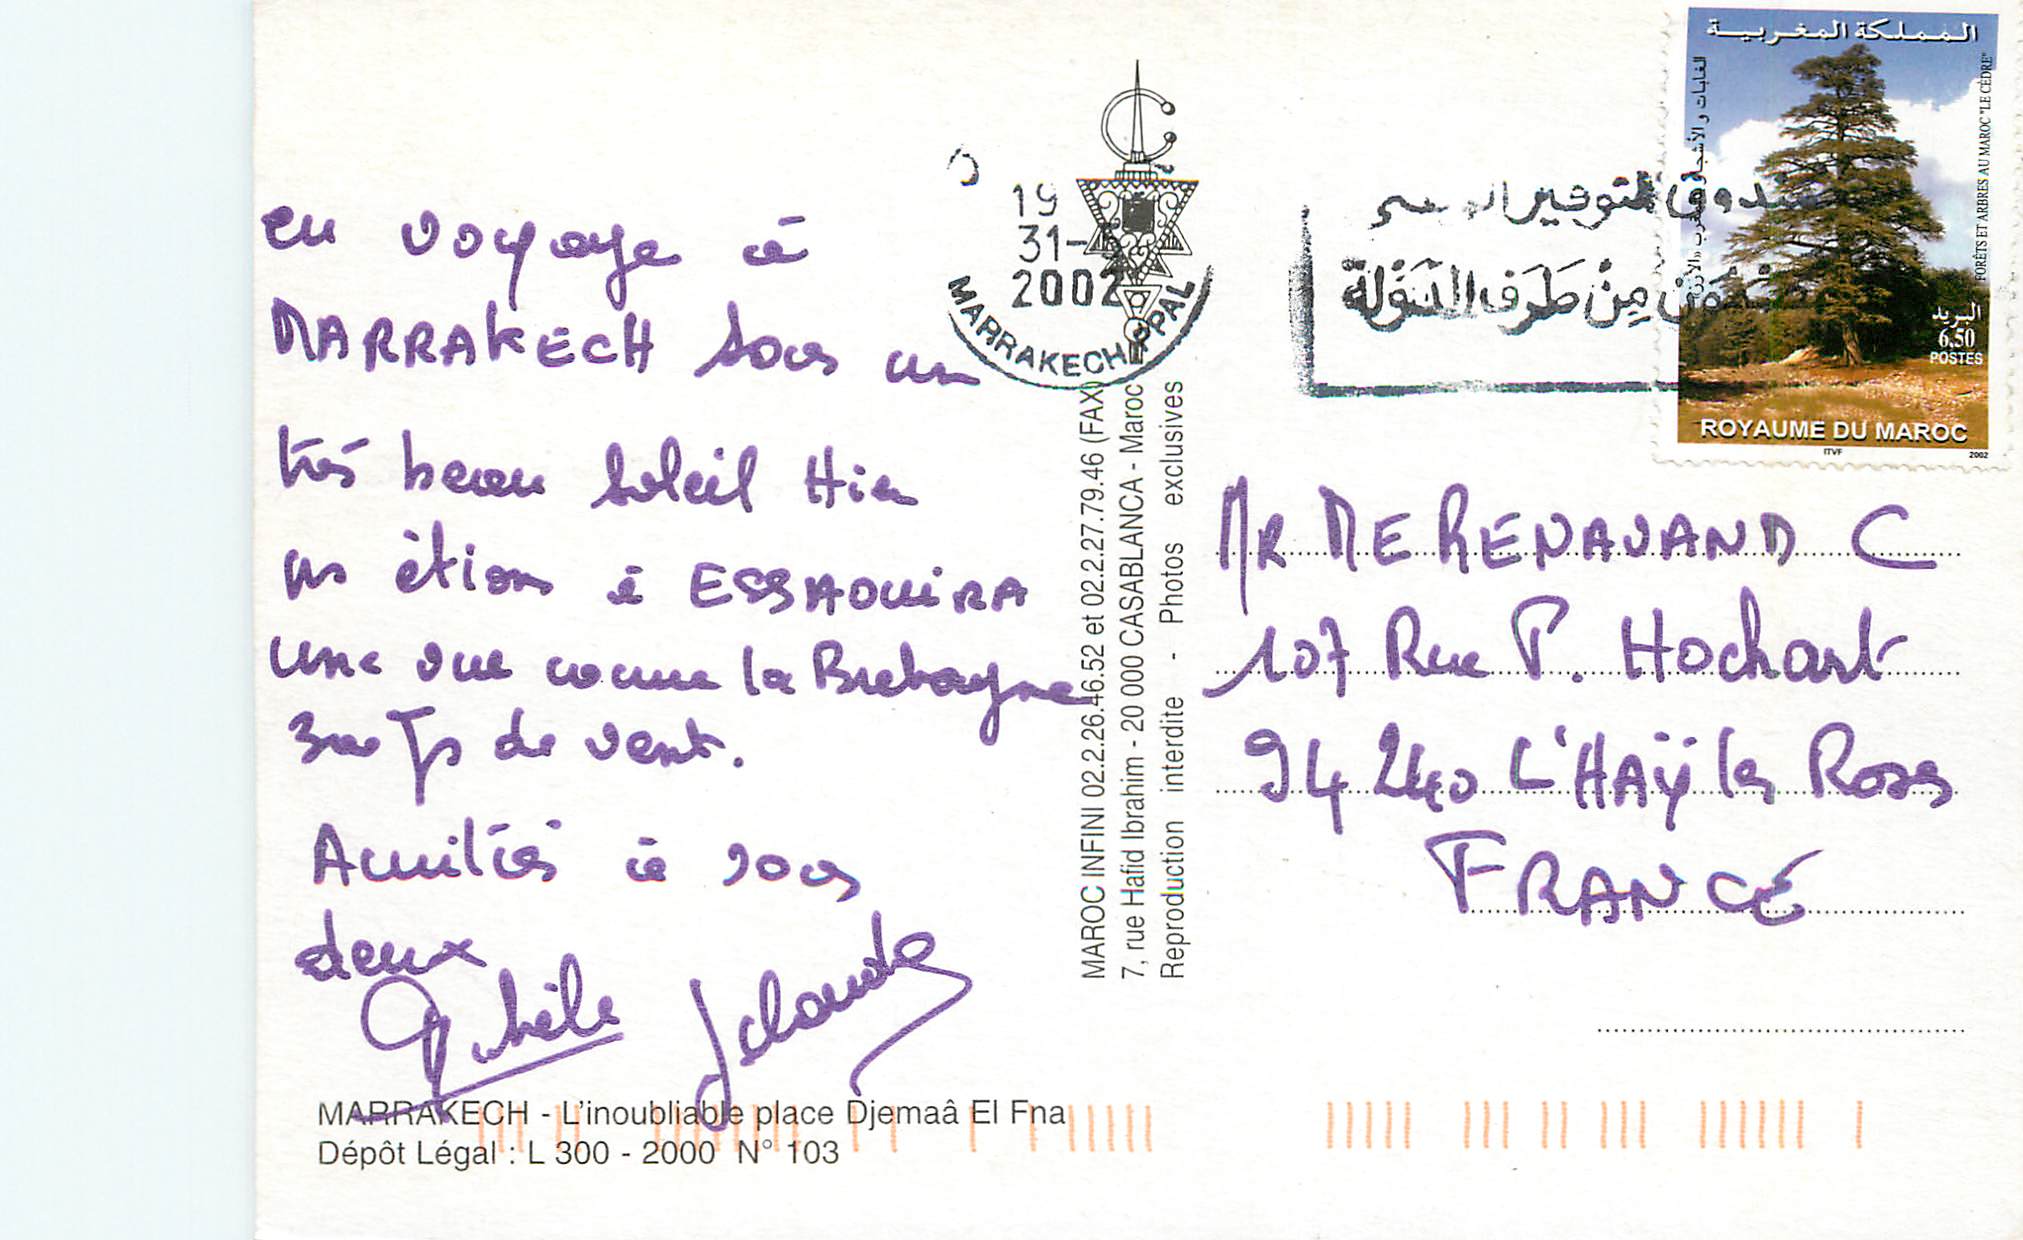 en voyage à
MARRAKECH sous un
très beau soleil Hier
ns étions à ESSAOUIRA
une vue comme la Bretagne
de vent.
Amitiés à vous
deux
MARRAKECH - L'inoubliable place Djemaâ El Fna
Dépôt Légal : L 300 - 2000 N° 103
19
31-
2002
MARRAKECH PPAL
MAROC INFINI 02.2.26.46.52 et 02.2.27.79.46 (FAX)
7, rue Hafid Ibrahim - 20 000 CASABLANCA - Maroc
Reproduction interdite - Photos exclusives
من طرف الدولة
المملكة المغربية
FORÊTS ET ARBRES AU MAROC "LE CÈDRE"
البريد
6,50
POSTES
ROYAUME DU MAROC
ITVF 2002
MR ME RENAUAND C
107 Rue P. Hochart
94 240 L'HAŸ les Roses
FRANCE